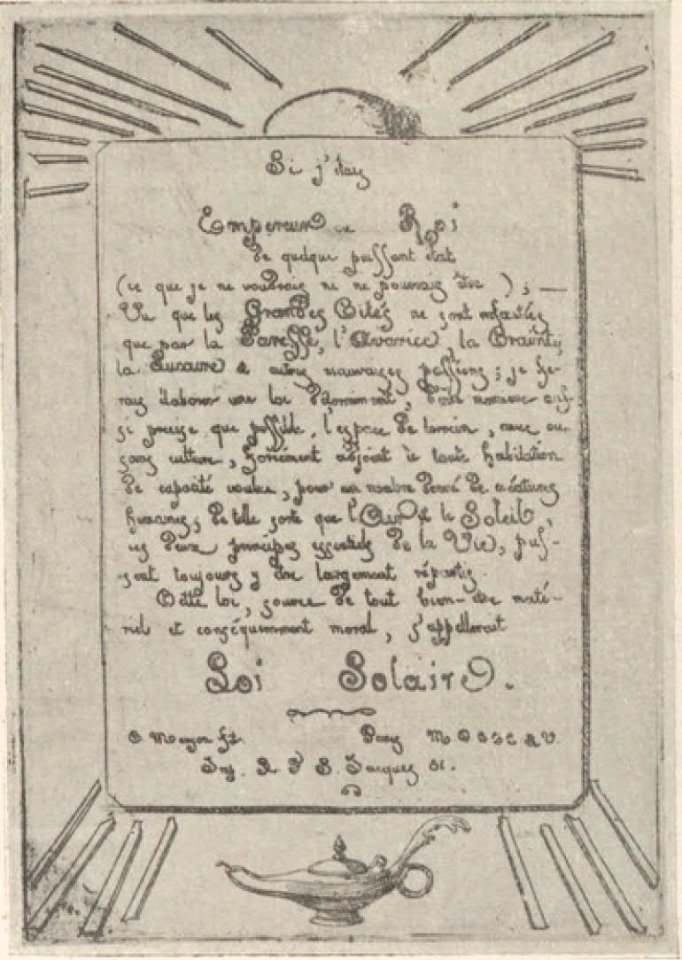 Si j'étais
Empereur ou Roi
de quelque puissant état
(ce que je ne voudrais ni ne pourrais être); —
Vu que les Grandes Cités ne sont enfantées
que par la Paresse, l'Avarice, la Crainte,
la Luxure & autres mauvaises passions; je fe-
rais élaborer une loi déterminant, d'une manière aus-
si précise que possible, l'espace de terrain, avec ou
sans culture, forcément adjoint à toute habitation
de capacité voulue, pour un nombre donné de créatures
humaines; de telle sorte que l'Air & le Soleil,
ces deux principes essentiels de la Vie, puis-
sent toujours y être largement répartis.
Cette loi, source de tout bien-être maté-
riel et conséquemment moral, s'appellerait
Loi Solaire.
C. Meryon ft. Paris
Imp. R. F S. Jacques